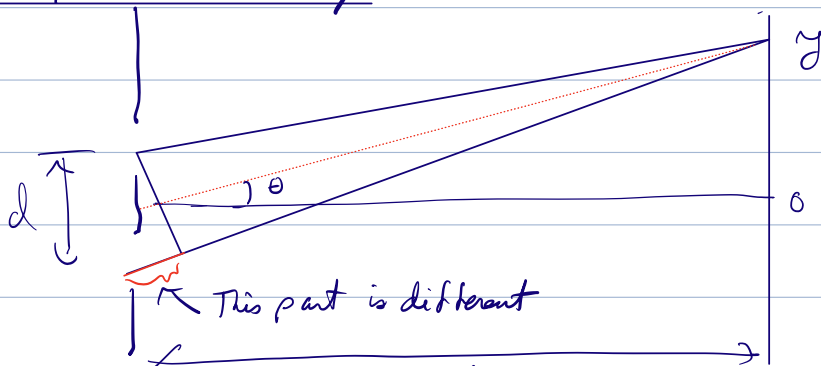 y
θ
d
0
This part is different